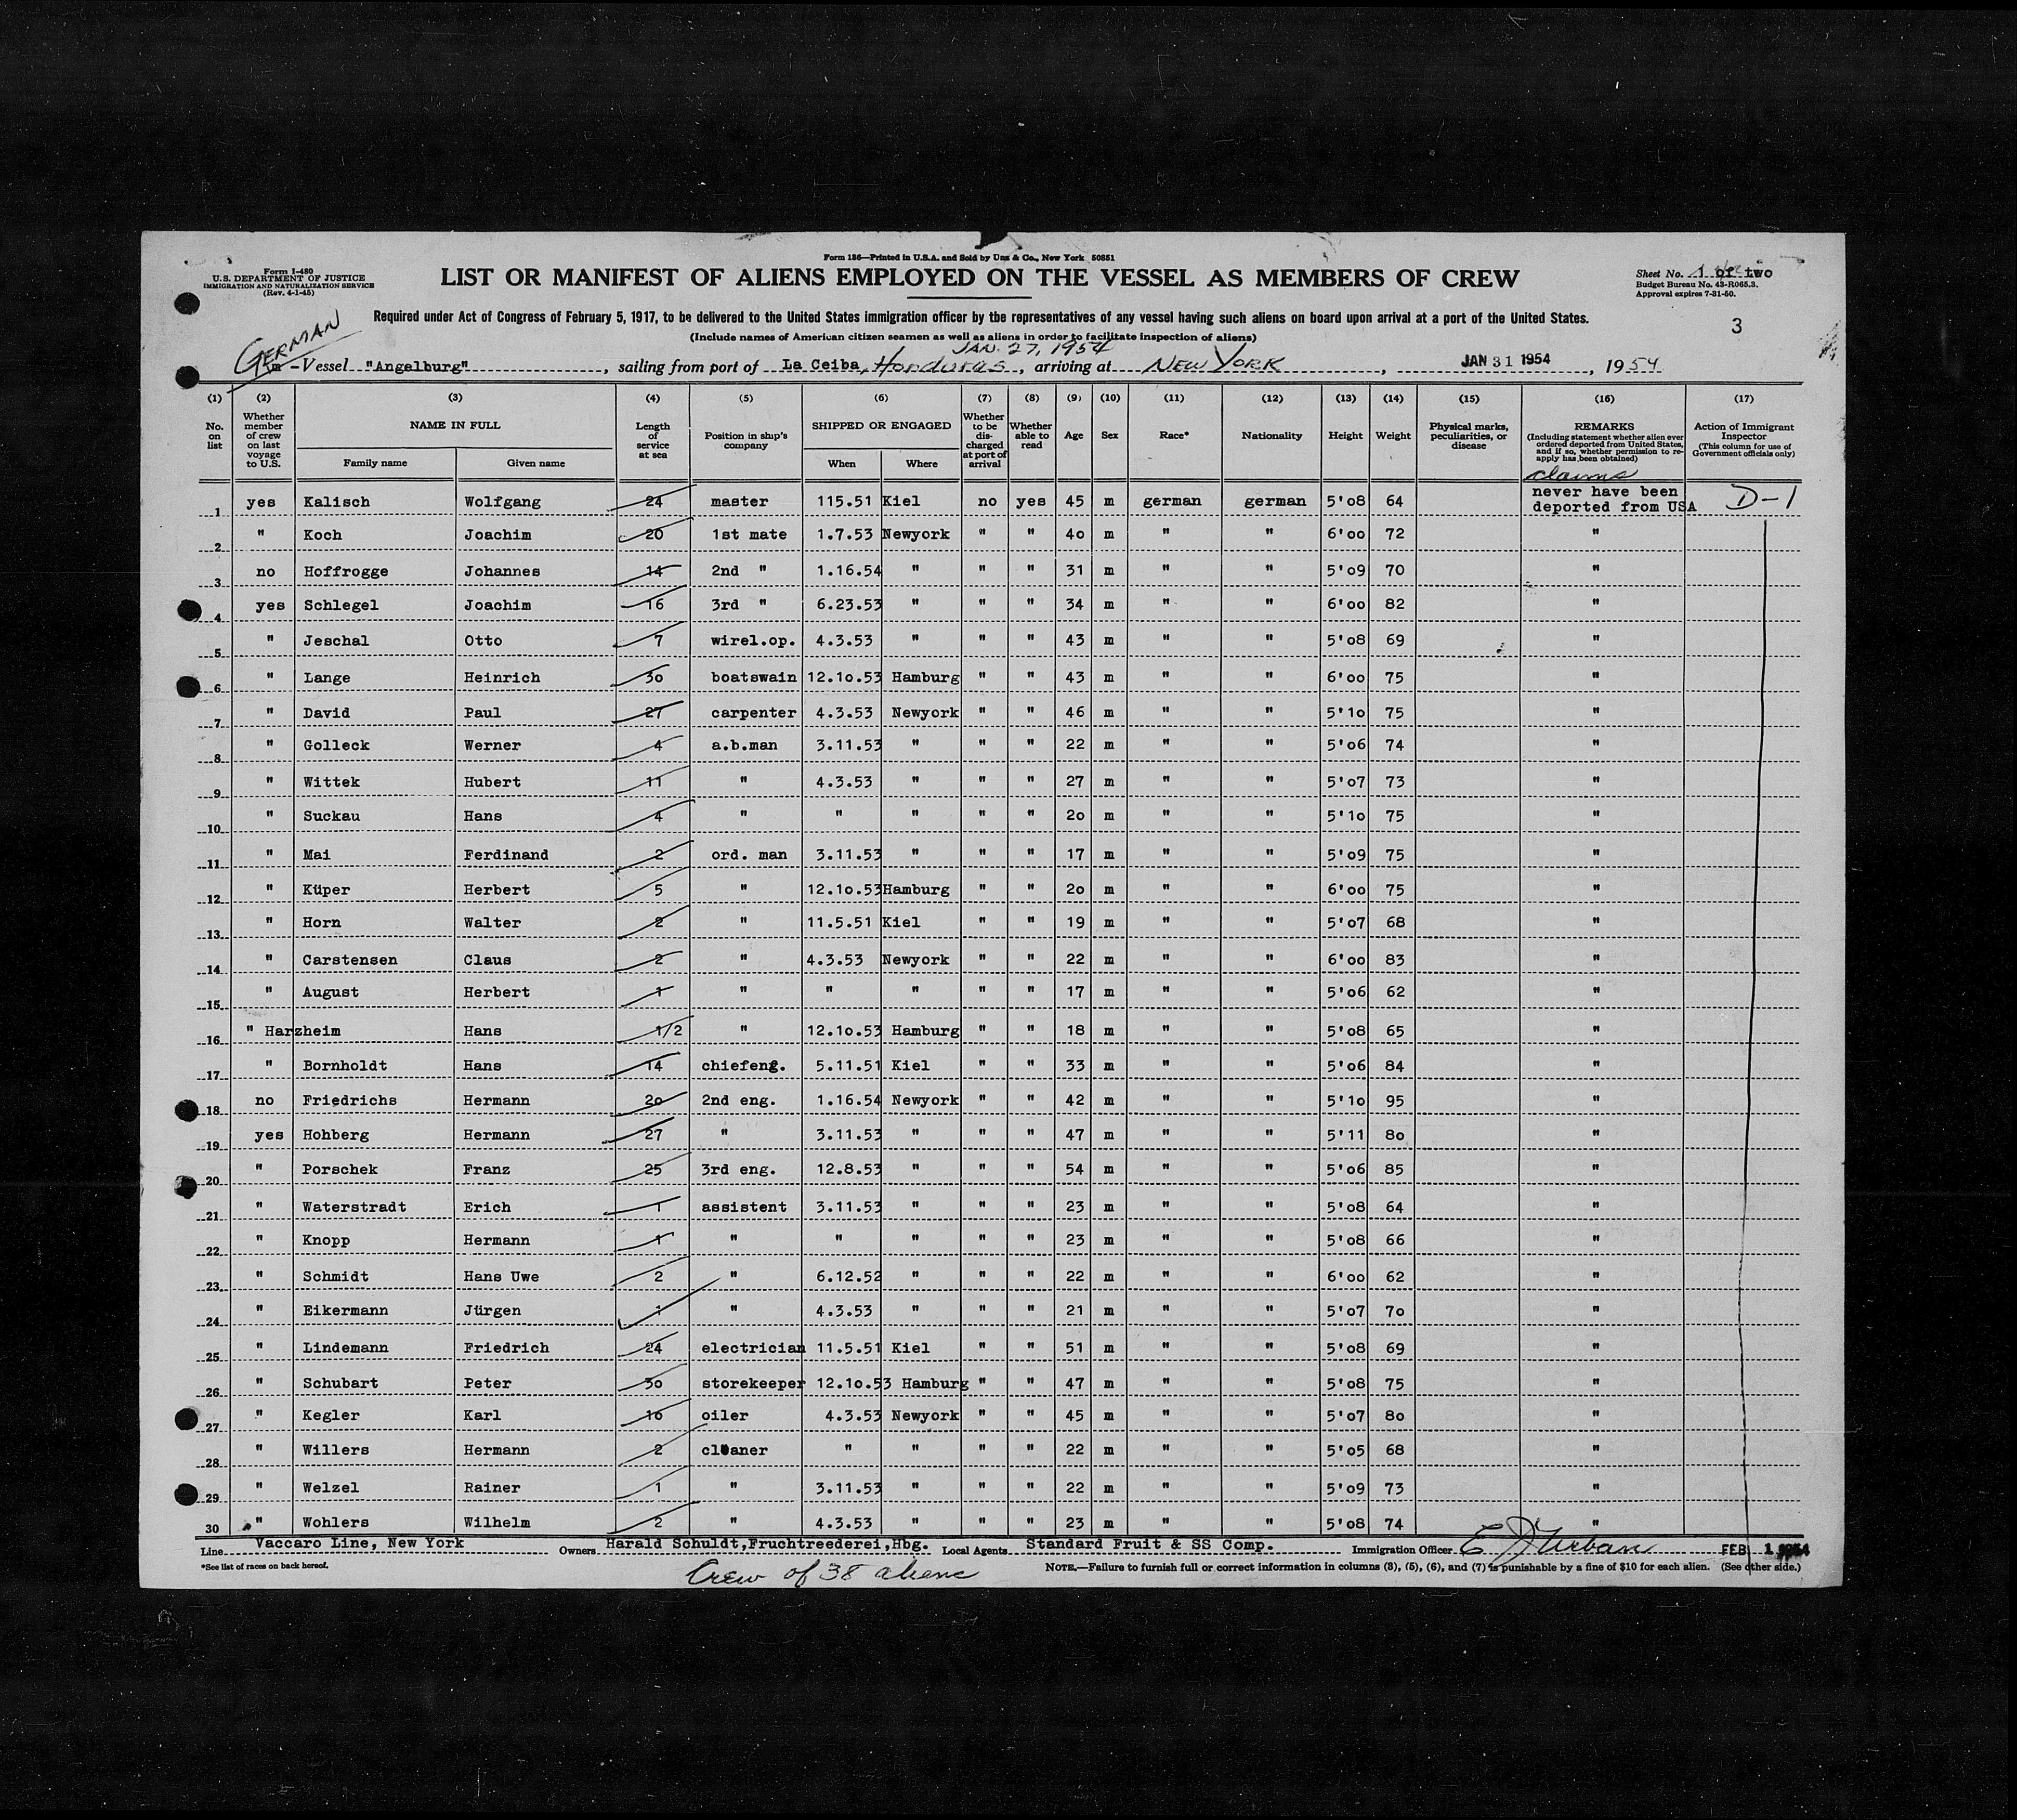 Form I-480
U.S. DEPARTMENT OF JUSTICE
IMMIGRATION AND NATURALIZATION SERVICE
(Rev. 4-1-45)
Form 186—Printed in U.S.A. and Sold by Unz & Co., New York 50851
LIST OR MANIFEST OF ALIENS EMPLOYED ON THE VESSEL AS MEMBERS OF CREW
Sheet No. 1 of two
Budget Bureau No. 43-R065.3.
Approval expires 7-31-50.
Required under Act of Congress of February 5, 1917, to be delivered to the United States immigration officer by the representatives of any vessel having such aliens on board upon arrival at a port of the United States.
3
(Include names of American citizen seamen as well as aliens in order to facilitate inspection of aliens)
GERMAN
JAN. 27, 1954
m -Vessel "Angelburg", sailing from port of La Ceiba, Honduras, arriving at NEW YORK, JAN 31 1954, 1954
(1) (2) (3) (4) (5) (6) (7) (8) (9) (10) (11) (12) (13) (14) (15) (16) (17)
No. on list Whether member of crew on last voyage to U.S. NAME IN FULL Family name Given name Length of service at sea Position in ship's company SHIPPED OR ENGAGED When Where Whether to be discharged at port of arrival Whether able to read Age Sex Race* Nationality Height Weight Physical marks, peculiarities, or disease REMARKS (Including statement whether alien ever ordered deported from United States, and if so, whether permission to re-apply has been obtained) Action of Immigrant Inspector (This column for use of Government officials only)
claims
1 yes Kalisch Wolfgang 24 master 115.51 Kiel no yes 45 m german german 5'08 64 never have been deported from USA D-1
2 " Koch Joachim 20 1st mate 1.7.53 Newyork " " 40 m " " 6'00 72 "
3 no Hoffrogge Johannes 14 2nd " 1.16.54 " " " 31 m " " 5'09 70 "
4 yes Schlegel Joachim 16 3rd " 6.23.53 " " " 34 m " " 6'00 82 "
5 " Jeschal Otto 7 wirel.op. 4.3.53 " " " 43 m " " 5'08 69 "
6 " Lange Heinrich 30 boatswain 12.10.53 Hamburg " " 43 m " " 6'00 75 "
7 " David Paul 27 carpenter 4.3.53 Newyork " " 46 m " " 5'10 75 "
8 " Golleck Werner 4 a.b.man 3.11.53 " " " 22 m " " 5'06 74 "
9 " Wittek Hubert 11 " 4.3.53 " " " 27 m " " 5'07 73 "
10 " Suckau Hans 4 " " " " " 20 m " " 5'10 75 "
11 " Mai Ferdinand 2 ord. man 3.11.53 " " " 17 m " " 5'09 75 "
12 " Küper Herbert 5 " 12.10.53 Hamburg " " 20 m " " 6'00 75 "
13 " Horn Walter 2 " 11.5.51 Kiel " " 19 m " " 5'07 68 "
14 " Carstensen Claus 2 " 4.3.53 Newyork " " 22 m " " 6'00 83 "
15 " August Herbert 1 " " " " " 17 m " " 5'06 62 "
16 " Harzheim Hans 1/2 " 12.10.53 Hamburg " " 18 m " " 5'08 65 "
17 " Bornholdt Hans 14 chiefeng. 5.11.51 Kiel " " 33 m " " 5'06 84 "
18 no Friedrichs Hermann 20 2nd eng. 1.16.54 Newyork " " 42 m " " 5'10 95 "
19 yes Hohberg Hermann 27 " 3.11.53 " " " 47 m " " 5'11 80 "
20 " Porschek Franz 25 3rd eng. 12.8.53 " " " 54 m " " 5'06 85 "
21 " Waterstradt Erich 1 assistent 3.11.53 " " " 23 m " " 5'08 64 "
22 " Knopp Hermann 1 " " " " " 23 m " " 5'08 66 "
23 " Schmidt Hans Uwe 2 " 6.12.52 " " " 22 m " " 6'00 62 "
24 " Eikermann Jürgen 1 " 4.3.53 " " " 21 m " " 5'07 70 "
25 " Lindemann Friedrich 24 electrician 11.5.51 Kiel " " 51 m " " 5'08 69 "
26 " Schubart Peter 30 storekeeper 12.10.53 Hamburg " " 47 m " " 5'08 75 "
27 " Kegler Karl 16 oiler 4.3.53 Newyork " " 45 m " " 5'07 80 "
28 " Willers Hermann 2 cleaner " " " " 22 m " " 5'05 68 "
29 " Welzel Rainer 1 " 3.11.53 " " " 22 m " " 5'09 73 "
30 " Wohlers Wilhelm 2 " 4.3.53 " " " 23 m " " 5'08 74 "
Line Vaccaro Line, New York Owners Harald Schuldt,Fruchtreederei,Hbg. Local Agents Standard Fruit & SS Comp. Immigration Officer E J Urban FEB 1 1954
*See list of races on back hereof.
Crew of 38 aliens
NOTE.—Failure to furnish full or correct information in columns (3), (5), (6), and (7) is punishable by a fine of $10 for each alien. (See other side.)